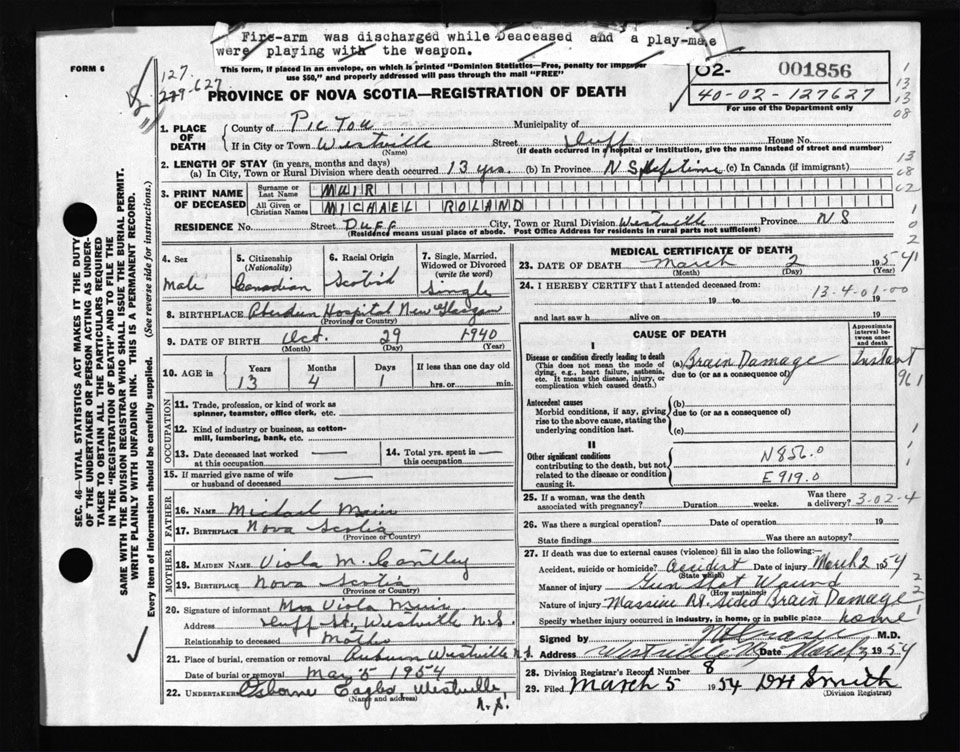 Fire-arm was discharged while Deaceased and a play-mate
were playing with the weapon.
FORM 6
This form, if placed in an envelope, on which is printed "Dominion Statistics—Free, penalty for improper
use $50," and properly addressed will pass through the mail "FREE"
127-627
O2- 001856
40-02-127627
For use of the Department only
PROVINCE OF NOVA SCOTIA—REGISTRATION OF DEATH
1. PLACE OF DEATH
County of Pictou Municipality of
If in City or Town Westville (Name) Street Duff House No.
(If death occurred in a hospital or institution, give the name instead of street and number)
2. LENGTH OF STAY (in years, months and days)
(a) In City, Town or Rural Division where death occurred 13 yrs. (b) In Province N S lifetime (c) In Canada (if immigrant)
3. PRINT NAME OF DECEASED
Surname or Last Name MUIR
All Given or Christian Names MICHAEL ROLAND
RESIDENCE No. Street DUFF City, Town or Rural Division Westville Province NS
(Residence means usual place of abode. Post Office Address for residents in rural parts not sufficient)
4. Sex Male
5. Citizenship (Nationality) Canadian
6. Racial Origin Scotish
7. Single, Married, Widowed or Divorced (write the word) Single
8. BIRTHPLACE Aberdeen Hospital New Glasgow
(Province or Country)
9. DATE OF BIRTH Oct. 29 1940
(Month) (Day) (Year)
10. AGE in Years 13 Months 4 Days 1 If less than one day old hrs. or min.
OCCUPATION
11. Trade, profession, or kind of work as spinner, teamster, office clerk, etc.
12. Kind of industry or business, as cotton-mill, lumbering, bank, etc.
13. Date deceased last worked at this occupation —
14. Total yrs. spent in this occupation —
15. If married give name of wife or husband of deceased —
FATHER
16. NAME Michael Muir
17. BIRTHPLACE Nova Scotia
(Province or Country)
MOTHER
18. MAIDEN NAME Viola M. Cantley
19. BIRTHPLACE Nova Scotia
(Province or Country)
20. Signature of informant Mrs Viola Muir
Address Duff St, Westville N.S.
Relationship to deceased Mother
21. Place of burial, cremation or removal Auburn Westville N.S.
Date of burial or removal Mar 5 1954
22. Undertaker Osborne Eagles, Westville, N.S.
(Name and address)
MEDICAL CERTIFICATE OF DEATH
23. DATE OF DEATH March 2 1954
(Month) (Day) (Year)
24. I HEREBY CERTIFY that I attended deceased from:
19 to 19
13-4-01-00
and last saw h alive on 19
CAUSE OF DEATH
Approximate interval between onset and death
I
Disease or condition directly leading to death
(This does not mean the mode of dying, e.g., heart failure, asthenia, etc. It means the disease, injury, or complication which caused death.)
(a) Brain Damage Instant
due to (or as a consequence of)
961
Antecedent causes
Morbid conditions, if any, giving rise to the above cause, stating the underlying condition last.
(b)
due to (or as a consequence of)
(c)
II
Other significant conditions
contributing to the death, but not related to the disease or condition causing it.
N856.0
E919.0
25. If a woman, was the death associated with pregnancy? Duration weeks. Was there a delivery?
3-02-4
26. Was there a surgical operation? Date of operation 19
State findings Was there an autopsy?
27. If death was due to external causes (violence) fill in also the following:—
Accident, suicide or homicide? Accident Date of injury March 2 1954
(State which)
Manner of injury Gun Shot Wound
(How sustained)
Nature of injury Massive Rt. Sided Brain Damage
Specify whether injury occurred in industry, in home, or in public place home
Signed by M.D.
Address Westville N.S. Date March 3 1954
28. Division Registrar's Record Number 8
29. Filed March 5 1954 DH Smith
(Division Registrar)
SEC. 46—VITAL STATISTICS ACT MAKES IT THE DUTY
OF THE UNDERTAKER OR PERSON ACTING AS UNDER-
TAKER TO OBTAIN ALL THE PARTICULARS REQUIRED
IN THE "REGISTRATION OF DEATH" AND TO FILE THE
SAME WITH THE DIVISION REGISTRAR WHO SHALL ISSUE THE BURIAL PERMIT.
WRITE PLAINLY WITH UNFADING INK. THIS IS A PERMANENT RECORD.
Every item of information should be carefully supplied. (See reverse side for instructions.)